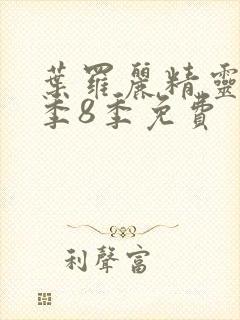 葉羅麗精靈
季8季免費
利聲富